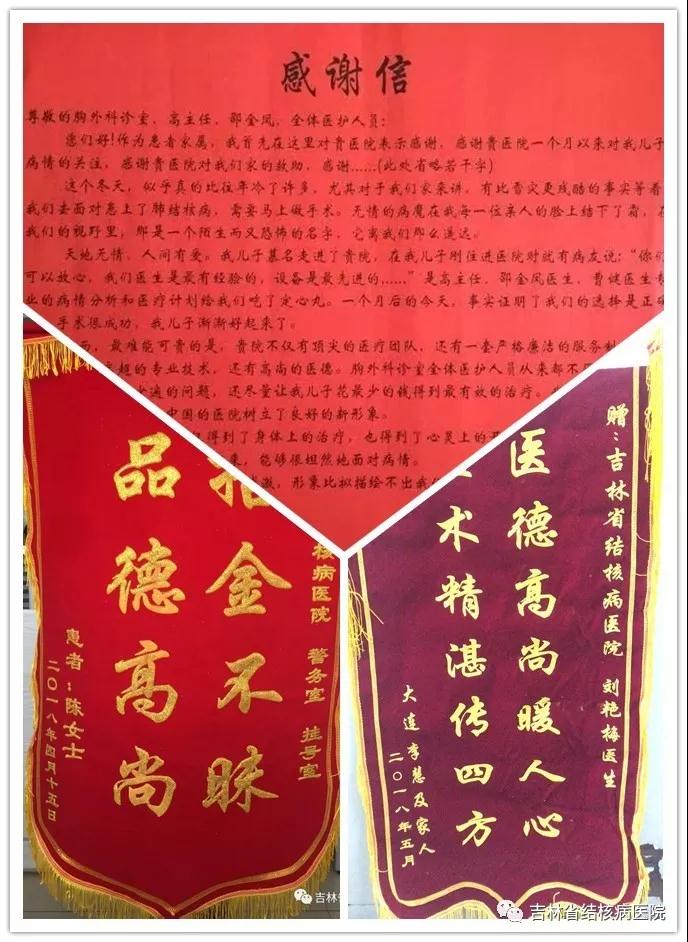 感谢信
尊敬的胸外科诊室、高主任、邵金凤、全体医护人员:
您们好!作为患者家属,我首先在这里对贵医院表示感谢,感谢贵医院一个月以来对我儿子
病情的关注,感谢贵医院对我们家的救助,感谢……(此处省略若干字)
这个冬天,似乎真的比往年冷了许多,尤其对于我们家来讲,有比雪灾更残酷的事实等着
我们去面对患上了肺结核病,需要马上做手术。无情的病魔在我每一位亲人的脸上结下了霜,在
我们的视野里,那是一个陌生而又恐怖的名字,它离我们那么遥远。
天地无情,人间有爱。我儿子慕名走进了贵院,在我儿子刚住进医院时就有病友说:“你们
可以放心,我们医生是最有经验的,设备是最先进的……”是高主任、邵金凤医生、曹健医生专
业的病情分析和医疗计划给我们吃了定心丸。一个月后的今天,事实证明了我们的选择是正确
手术很成功,我儿子渐渐好起来了。
而,最难能可贵的是,贵院不仅有顶尖的医疗团队,还有一套严格廉洁的服务制
超的专业技术,还有高尚的医德。胸外科诊室全体医护人员从来都不
遍的问题,还尽量让我儿子花最少的钱得到最有效的治疗。
中国的医院树立了良好的新形象。
得到了身体上的治疗,也得到了心灵上的
来,能够很坦然地面对病情。
激,形象比拟描绘不出我
核病医院 警务室 挂号室
金不昧
品德高尚
患者:陈女士
二〇一八年四月十五日
赠:吉林省结核病医院 刘艳梅医生
医德高尚暖人心
术精湛传四方
大连李慧及家人
二〇一八年五月
吉林省
吉林省结核病医院